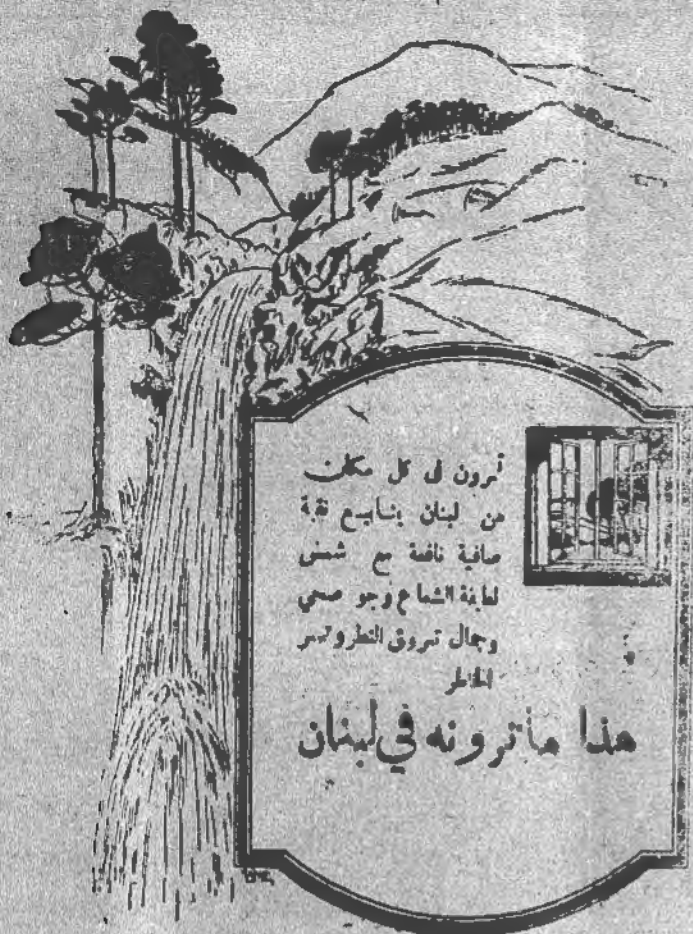 ترون في كل مكان
من لبنان ينابيع نقية
صافية نافعة مع شمس
لطيفة الشعاع وجو صحي
وجمال تروق النظر وتبهر
الخاطر
هذا ما ترونه في لبنان